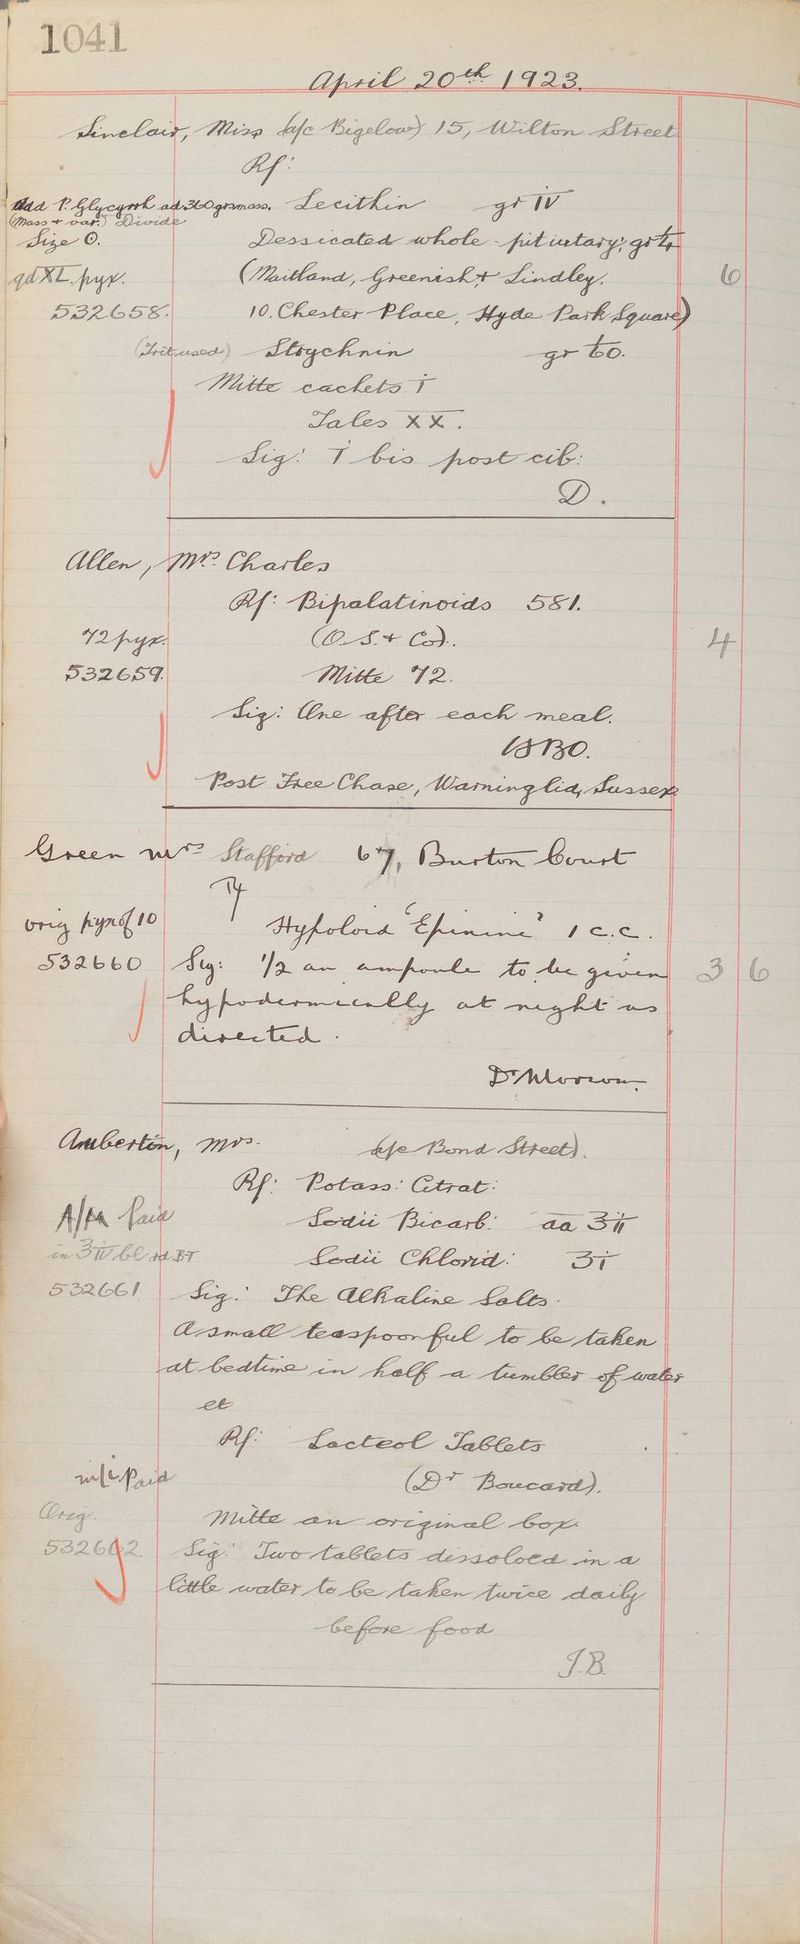 1041
April 20th 1923.
Sinclair, Miss (a/c Bigelow) 15, Wilton Street
Rf:
Add P. Glycyrrh ad 360 grs mass. Lecithin gr iv
(Mass + var.) Divide
Size O. Dessicated whole pituitary: gr ¼
qd XL pyx. (Maitland, Greenish & Lindley. 6
532658. 10. Chester Place, Hyde Park Square)
(Trit used) Strychnin gr 1/60.
Mitte cachets i
Tales XX.
Sig: i bis post cib:
D.
Allen, Mrs Charles
Rf: Bipalatinoids 581.
72 pyx. (O. S. & Co). 4
532659. Mitte 72.
Sig: One after each meal.
HBO.
Post Free Chase, Warninglid, Sussex
Green Mrs Stafford 67, Burton Court
Rf
orig pyx of 10 Hypoloid 'Epinine' 1 c.c.
532660 Sig: 1/2 an ampoule to be given 3 6
hypodermically at night as
directed.
Dr
Amberton, Mrs. (a/c Bond Street).
Rf: Potass: Citrat:
Paid Sodii Bicarb: aa ʒii
in ʒiv Sodii Chlorid: ʒi
532661 Sig: The Alkaline Salts.
A small teaspoonful to be taken
at bedtime in half a tumbler of water
et
Rf: Lacteol Tablets
Paid (Dr Boucard).
Orig. Mitte an original box.
532662 Sig: Two tablets dissolved in a
little water to be taken twice daily
before food
J.B.